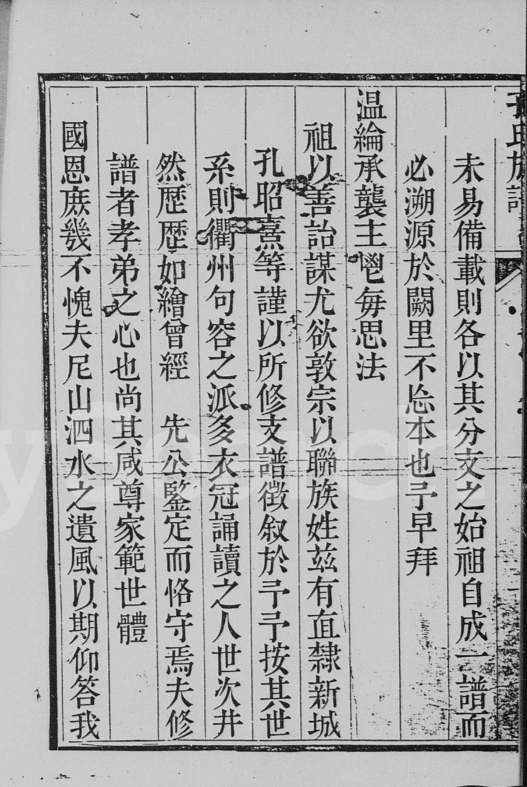 孔氏族譜
未易備載則各以其分支之始祖自成一譜而
必溯源於闕里不忘本也予早拜
温綸承襲主鬯每思法
祖以善詒謀尤欲敦宗以聯族姓茲有直隸新城
孔昭熹等謹以所修支譜徵叙於予予按其世
系則衢州句容之派多衣冠誦讀之人世次井
然歴歴如繪曾經　先公鑒定而恪守焉夫修
譜者孝弟之心也尚其咸尊家範世體
國恩庶幾不愧夫尼山泗水之遺風以期仰答我